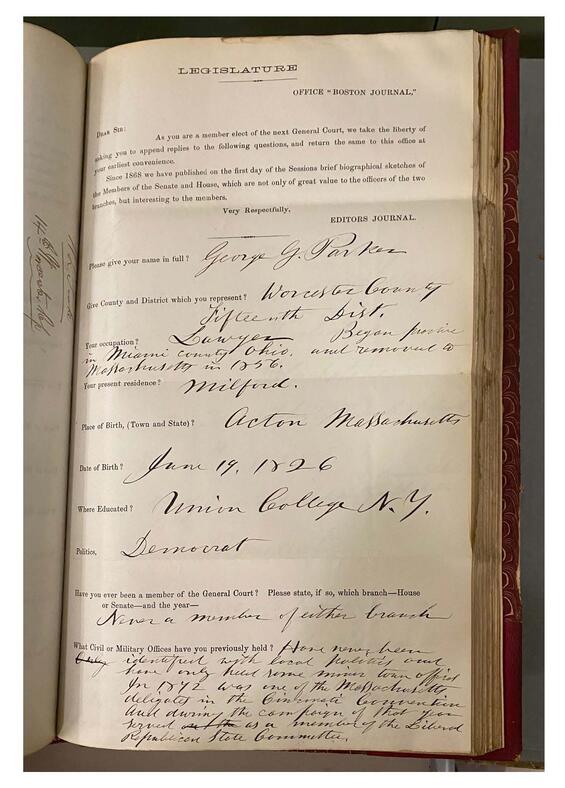 LEGISLATURE
OFFICE "BOSTON JOURNAL,"
DEAR SIR:
As you are a member elect of the next General Court, we take the liberty of
asking you to append replies to the following questions, and return the same to this office at
your earliest convenience.
Since 1868 we have published on the first day of the Sessions brief biographical sketches of
the Members of the Senate and House, which are not only of great value to the officers of the two
branches, but interesting to the members.
Very Respectfully,
EDITORS JOURNAL.
Please give your name in full? George G. Parker
Give County and District which you represent? Worcester County
Fifteenth Dist.
Your occupation? Lawyer Began
in Miami County Ohio, and removed to
Massachusetts in 1856.
Your present residence? Milford.
Place of Birth, (Town and State)? Acton Massachusetts
Date of Birth? June 19, 1826
Where Educated? Union College N.Y.
Politics, Democrat
Have you ever been a member of the General Court? Please state, if so, which branch—House
or Senate—and the year—
Never a member of either branch
What Civil or Military Offices have you previously held? Have never been
identified with local politics and
have only held some minor town offices
In 1872 was one of the Massachusetts
delegates in the Cincinnati Convention
and during the campaign of that year
served as a member of the Liberal
Republican State Committee.